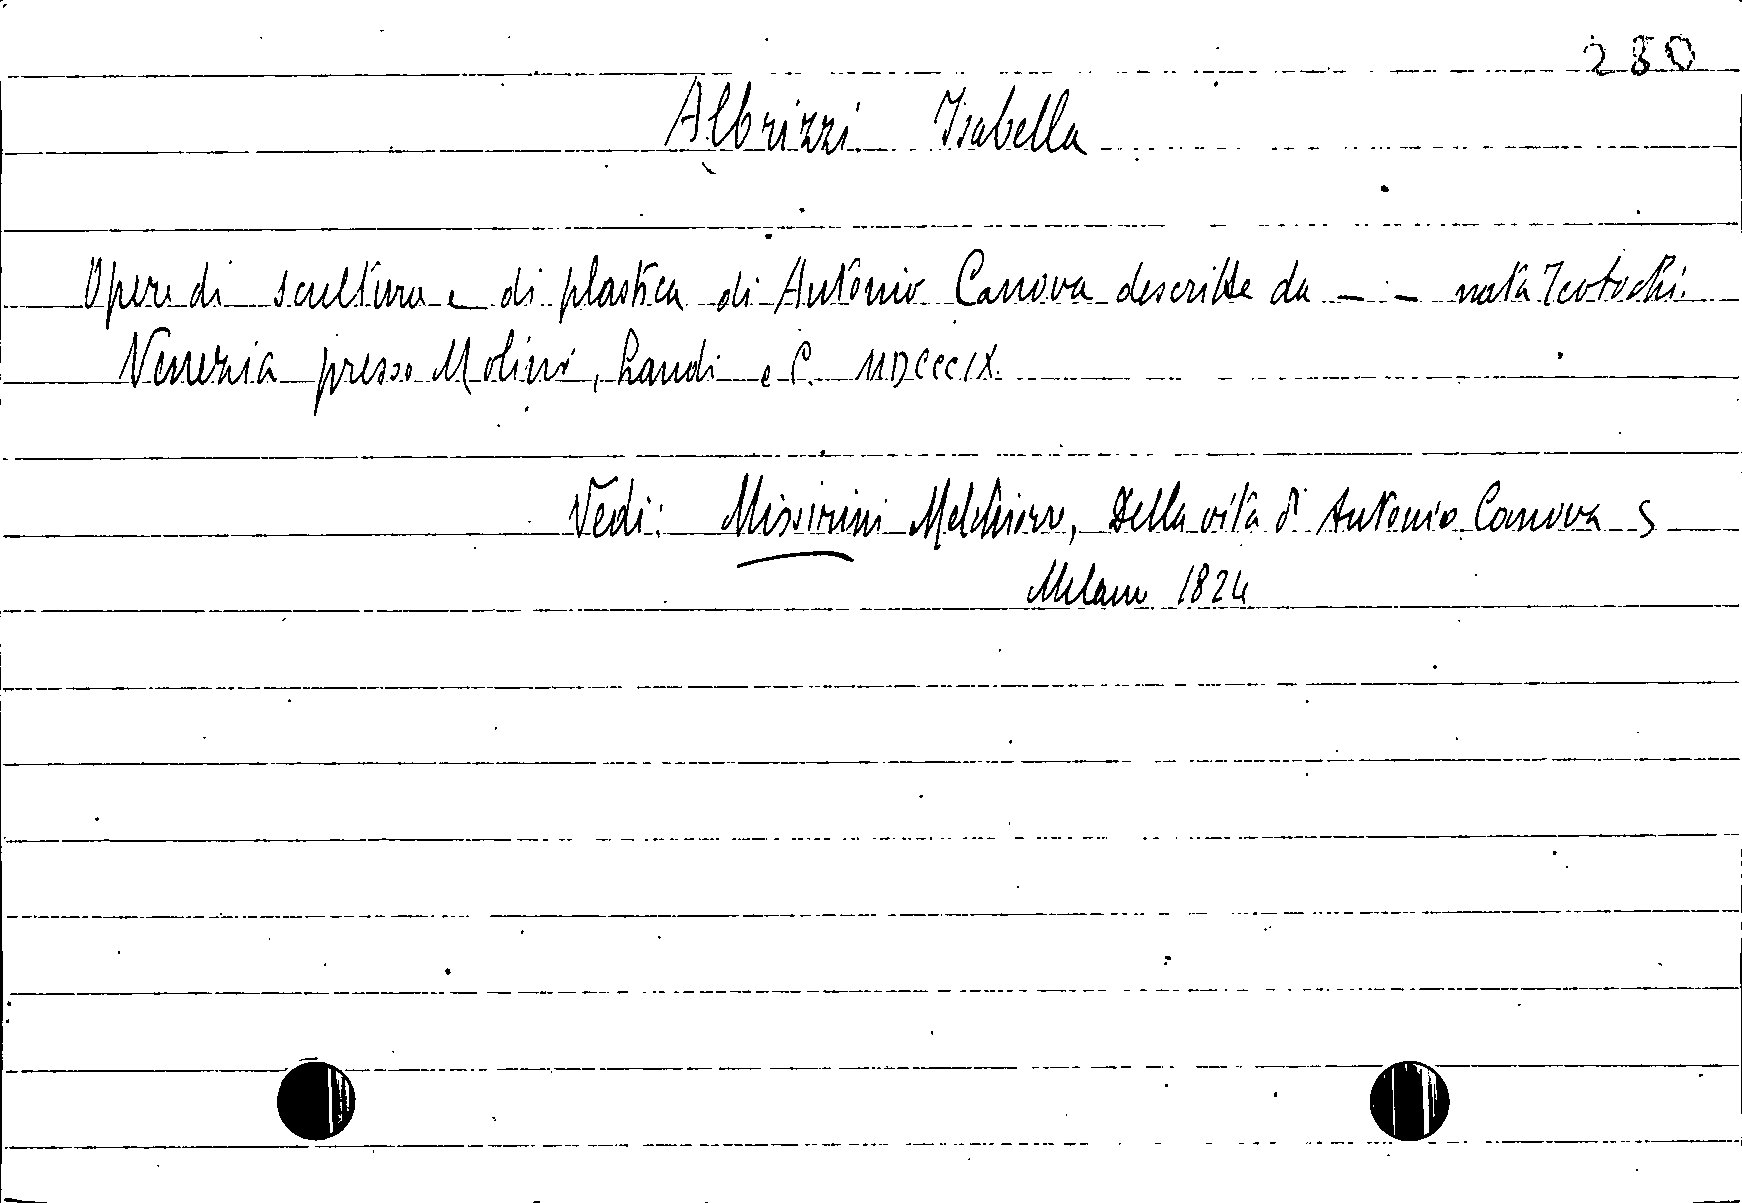 280
Albrizzi Isabella
Opere di scultura e di plastica di Antonio Canova descritte da – – nata Teotochi.
Venezia presso Molini, Landi e C. MDCCCIX.
Vedi: Missirini Melchiorre, Della vita di Antonio Canova
Milano 1824